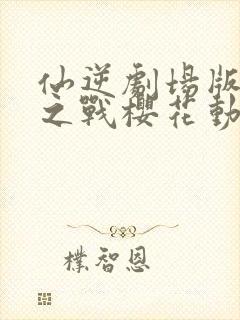 仙逆劇場版
之戰櫻花動
樸智恩